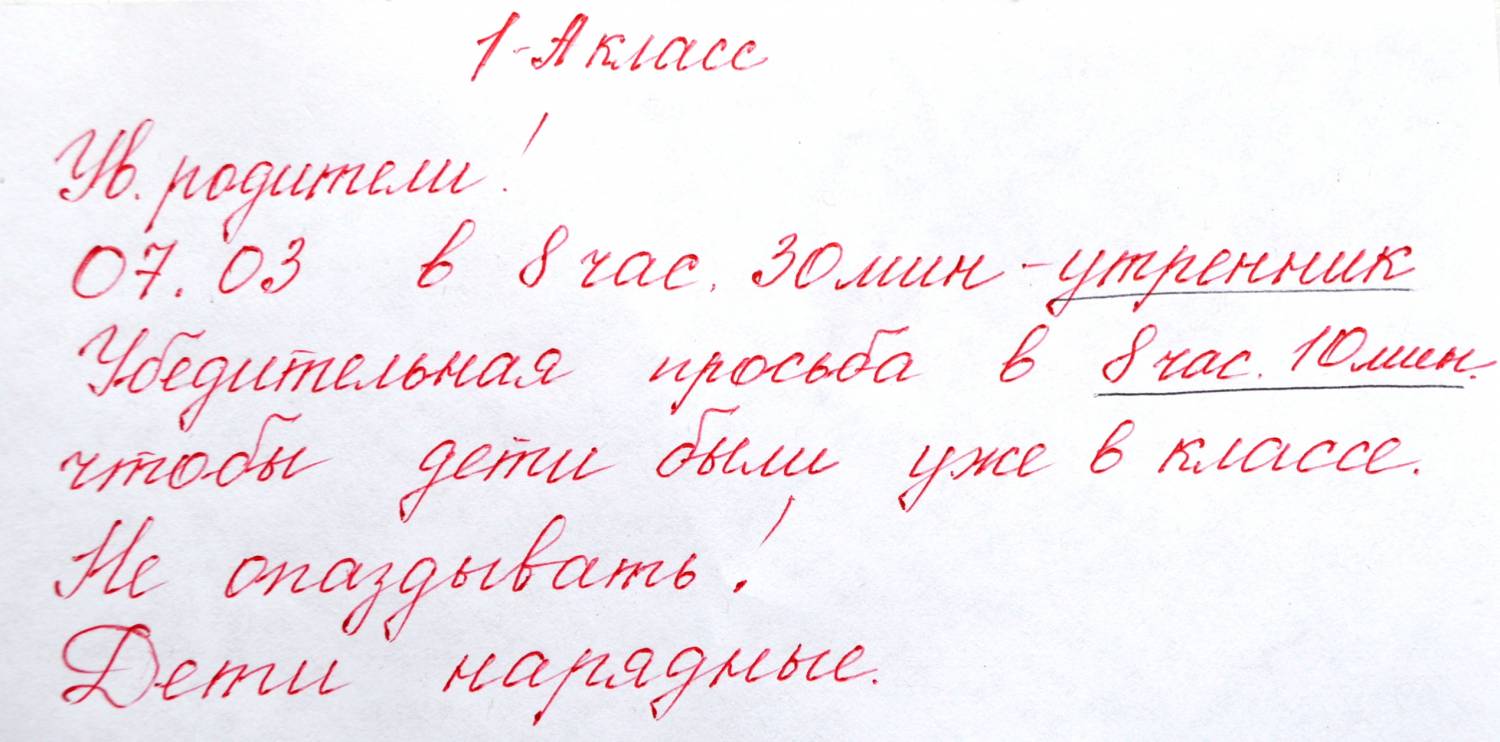 1-А класс
Ув. родители!
07.03 в 8 час. 30 мин - утренник
Убедительная просьба в 8 час. 10 мин.
чтобы дети были уже в классе.
Не опаздывать!
Дети нарядные.